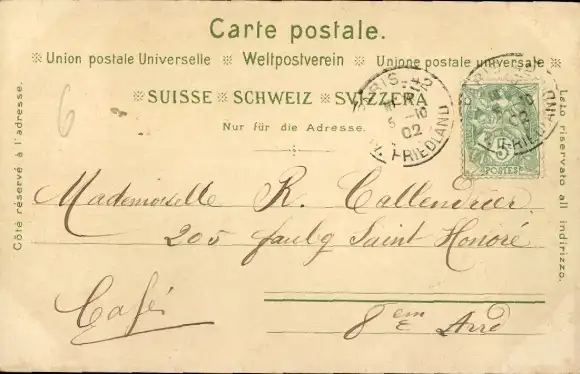 Carte postale.
※ Union postale Universelle ※ Weltpostverein ※ Unione postale universale ※
※ SUISSE ※ SCHWEIZ ※ SVIZZERA
Nur für die Adresse.
Côté réservé à l'adresse.
Lato riservato all indirizzo.
6
PARIS
5 -10
02
FRIEDLAND
5c
POSTES
Mademoiselle R. Callendrier
205 faubg Saint Honoré
Café
8em
E Arrd